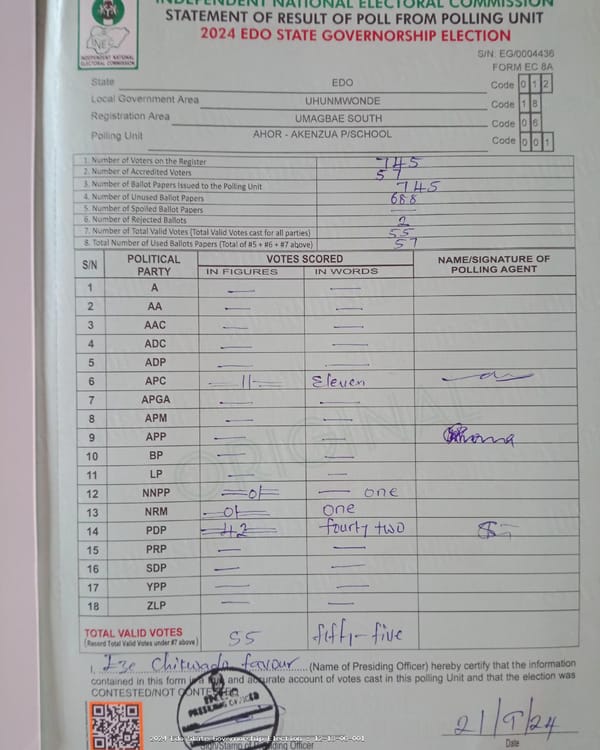 INDEPENDENT NATIONAL ELECTORAL COMMISSION
STATEMENT OF RESULT OF POLL FROM POLLING UNIT
2024 EDO STATE GOVERNORSHIP ELECTION
INEC
INDEPENDENT NATIONAL
ELECTORAL COMMISSION
S/N: EG/0004436
FORM EC 8A
State EDO Code 0 1 2
Local Government Area UHUNMWONDE Code 1 8
Registration Area UMAGBAE SOUTH Code 0 6
Polling Unit AHOR - AKENZUA P/SCHOOL Code 0 0 1
1. Number of Voters on the Register 745
2. Number of Accredited Voters 57
3. Number of Ballot Papers Issued to the Polling Unit 745
4. Number of Unused Ballot Papers 688
5. Number of Spoiled Ballot Papers —
6. Number of Rejected Ballots 2
7. Number of Total Valid Votes (Total Valid Votes cast for all parties) 55
8. Total Number of Used Ballots Papers (Total of #5 + #6 + #7 above) 57
S/N POLITICAL PARTY VOTES SCORED NAME/SIGNATURE OF POLLING AGENT
IN FIGURES IN WORDS
1 A — —
2 AA — —
3 AAC — —
4 ADC — —
5 ADP — —
6 APC 11 Eleven
7 APGA — —
8 APM — —
9 APP — —
10 BP — —
11 LP — —
12 NNPP 01 — one
13 NRM 01 one
14 PDP 42 fourty two
15 PRP — —
16 SDP — —
17 YPP — —
18 ZLP — —
ORIGINAL
TOTAL VALID VOTES 55 fifty-five
(Record Total Valid Votes under #7 above)
I, Eze Chikwado favour (Name of Presiding Officer) hereby certify that the information
contained in this form is a true and accurate account of votes cast in this polling Unit and that the election was
CONTESTED/NOT CONTESTED
INEC
PRESIDING OFFICER
21/9/24
2024 Edo State Governorship Election - 12-18-06-001
Sign/Stamp of Presiding Officer Date